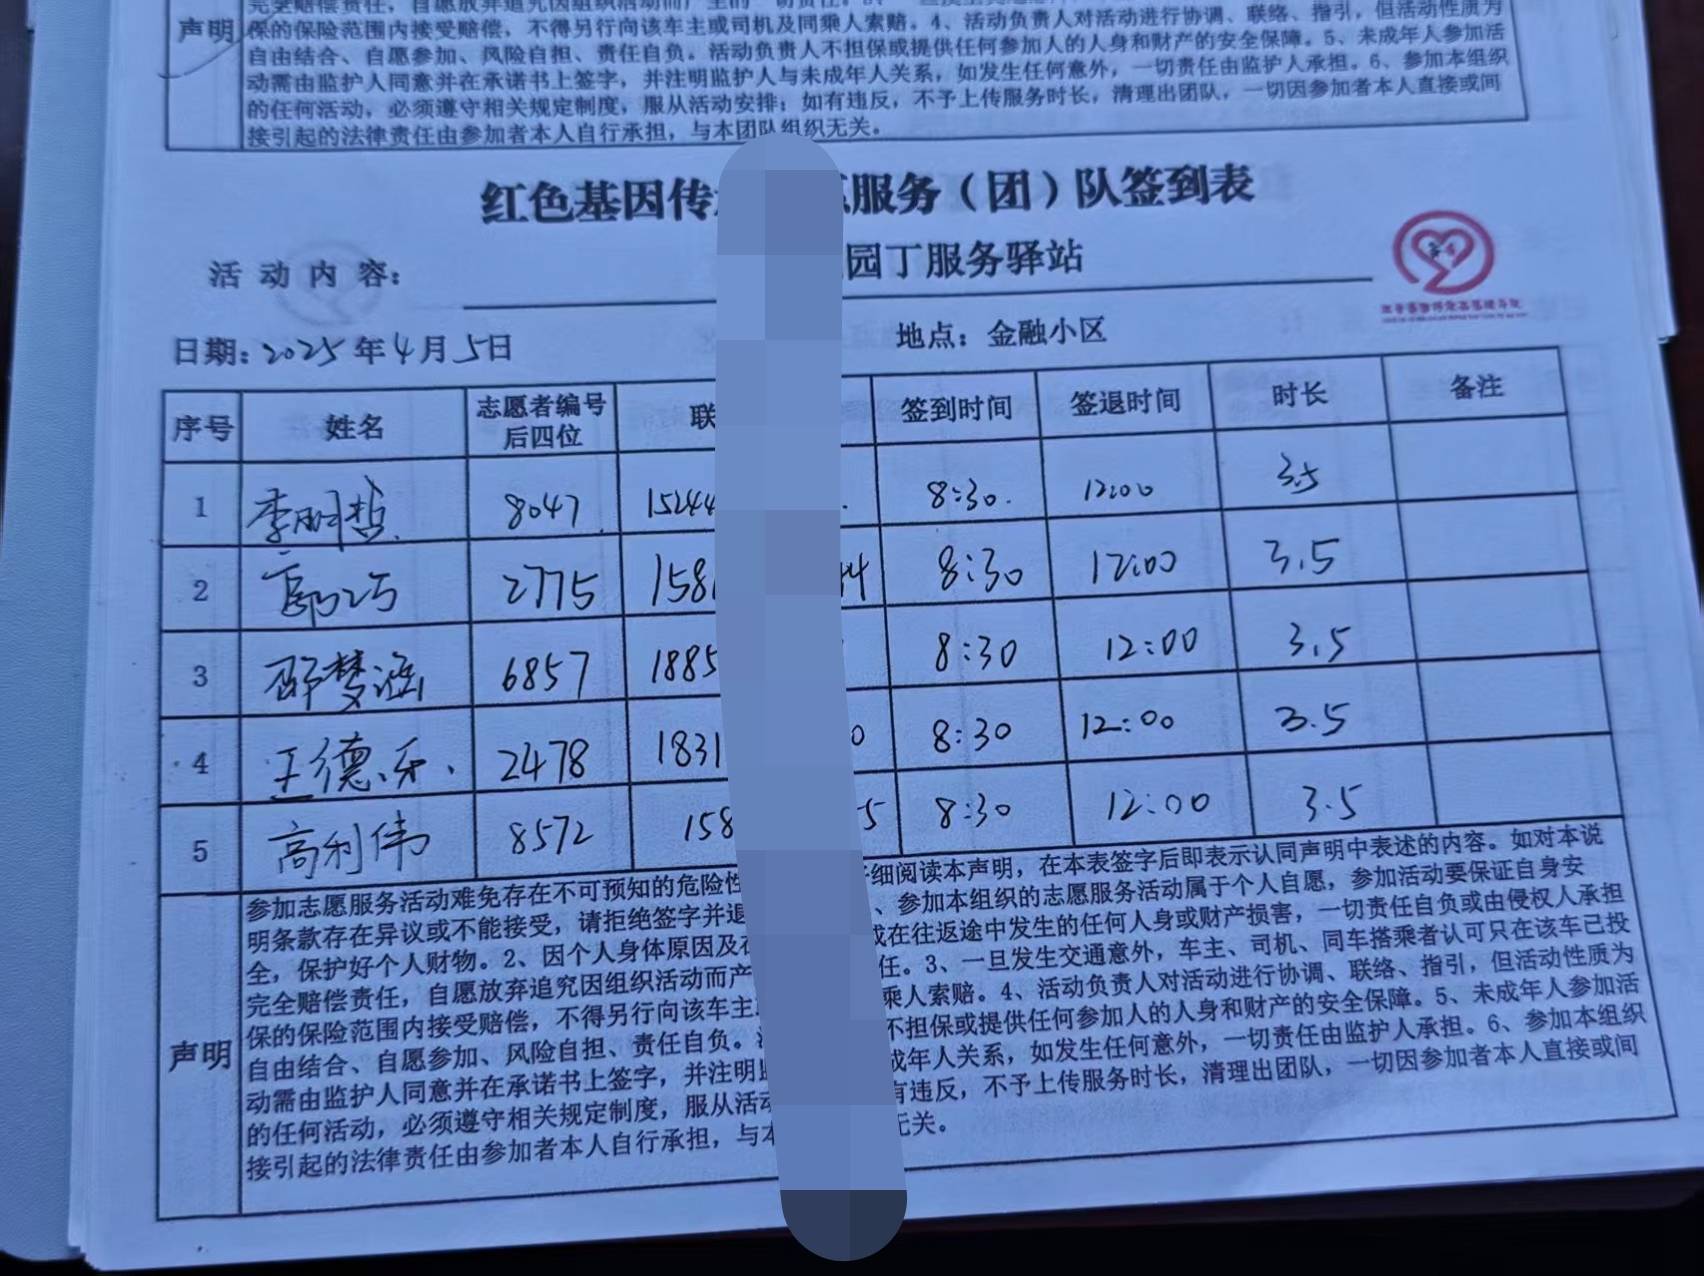 完全赔偿责任，自愿放弃追究因组织活动而产生的一切责任。
声明
保的保险范围内接受赔偿，不得另行向该车主或司机及同乘人索赔。4、活动负责人对活动进行协调、联络、指引，但活动性质为
自由结合、自愿参加、风险自担、责任自负。活动负责人不担保或提供任何参加人的人身和财产的安全保障。5、未成年人参加活
动需由监护人同意并在承诺书上签字，并注明监护人与未成年人关系，如发生任何意外，一切责任由监护人承担。6、参加本组织
的任何活动，必须遵守相关规定制度，服从活动安排；如有违反，不予上传服务时长，清理出团队，一切因参加者本人直接或间
接引起的法律责任由参加者本人自行承担，与本团队组织无关。
红色基因传 服务（团）队签到表
活动内容： 园丁服务驿站
日期：2025年4月5日 地点：金融小区
序号 姓名 志愿者编号后四位 联 签到时间 签退时间 时长 备注
1 李明哲 8047 15244 8:30. 12:00 3.5
2 郭巧 2775 158 44 8:30 12:00 3.5
3 邵梦涵 6857 1885 8:30 12:00 3.5
4 王德乐 2478 1831 0 8:30 12:00 3.5
5 高利伟 8572 158 5 8:30 12:00 3.5
声明
参加志愿服务活动难免存在不可预知的危险性 细阅读本声明，在本表签字后即表示认同声明中表述的内容。如对本说
明条款存在异议或不能接受，请拒绝签字并退 、参加本组织的志愿服务活动属于个人自愿，参加活动要保证自身安
全，保护好个人财物。2、因个人身体原因及在 或在往返途中发生的任何人身或财产损害，一切责任自负或由侵权人承担
完全赔偿责任，自愿放弃追究因组织活动而产 任。3、一旦发生交通意外，车主、司机、同车搭乘者认可只在该车已投
保的保险范围内接受赔偿，不得另行向该车主 乘人索赔。4、活动负责人对活动进行协调、联络、指引，但活动性质为
自由结合、自愿参加、风险自担、责任自负。 不担保或提供任何参加人的人身和财产的安全保障。5、未成年人参加活
动需由监护人同意并在承诺书上签字，并注明 成年人关系，如发生任何意外，一切责任由监护人承担。6、参加本组织
的任何活动，必须遵守相关规定制度，服从活 有违反，不予上传服务时长，清理出团队，一切因参加者本人直接或间
接引起的法律责任由参加者本人自行承担，与本 无关。